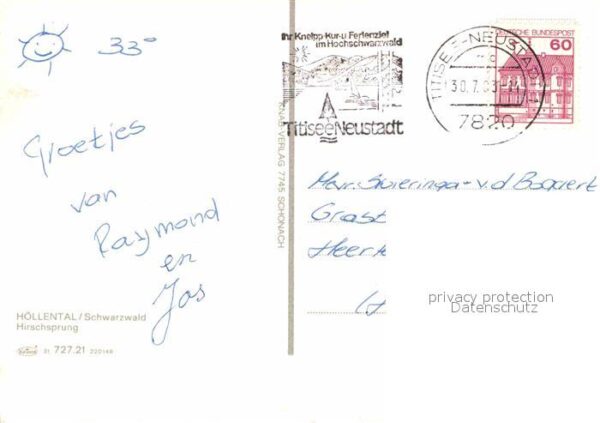 33°
Groetjes
van
Raymond
en
Jos
HÖLLENTAL/Schwarzwald
Hirschsprung
727.21 220148
KNAB VERLAG 7745 SCHONACH
Ihr Kneipp-Kur-u. Ferienziel
im Hochschwarzwald
Titisee Neustadt
TITISEE-NEUSTADT
30.7.83
7820
DEUTSCHE BUNDESPOST
60
Mevr. Swieringa-v.d.
Grast
Heer
privacy protection
Datenschutz